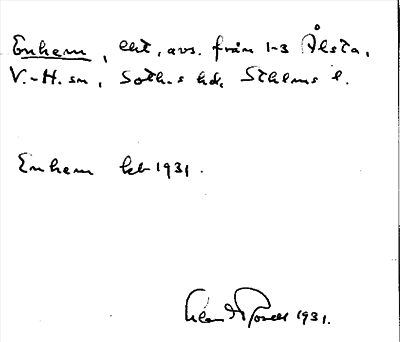 Enhem, lht, avs. från 1-3 Ålsta,
V.-H. sn, Soth.s hd, Sthlms l.
Enhem kb 1931.
1931.